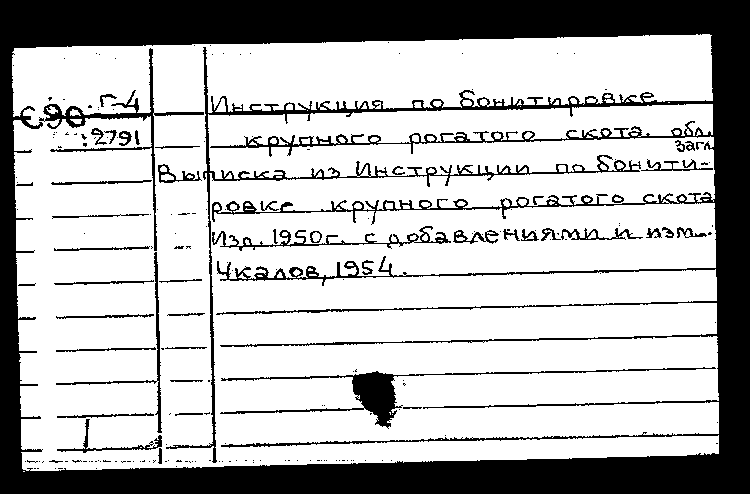 Г-4
€90
:2791
Инструкция по бонитировке
крупного рогатого скота. обл.
загл.
Выписка из Инструкции по бонити-
ровке крупного рогатого скота
Изд. 1950г. с добавлениями и изм.
Чкалов, 1954.